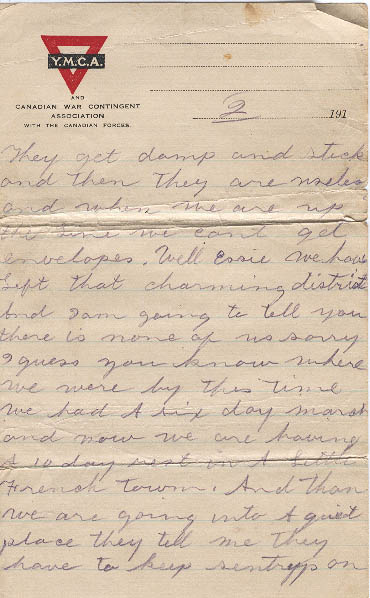 Y.M.C.A.
AND
CANADIAN WAR CONTINGENT
ASSOCIATION
WITH THE CANADIAN FORCES.
2 191
They get damp and stick
and then they are useless
and when we are up
the line we cant get
envelopes. Well Essie we have
left that charming district
And I am going to tell you
there is none of us sorry
I guess you know where
we were by this time
we had A six day march
and now we are having
A 10 day rest in A little
French town. And than
we are going into A quiet
place they tell me they
have to keep sentrys on